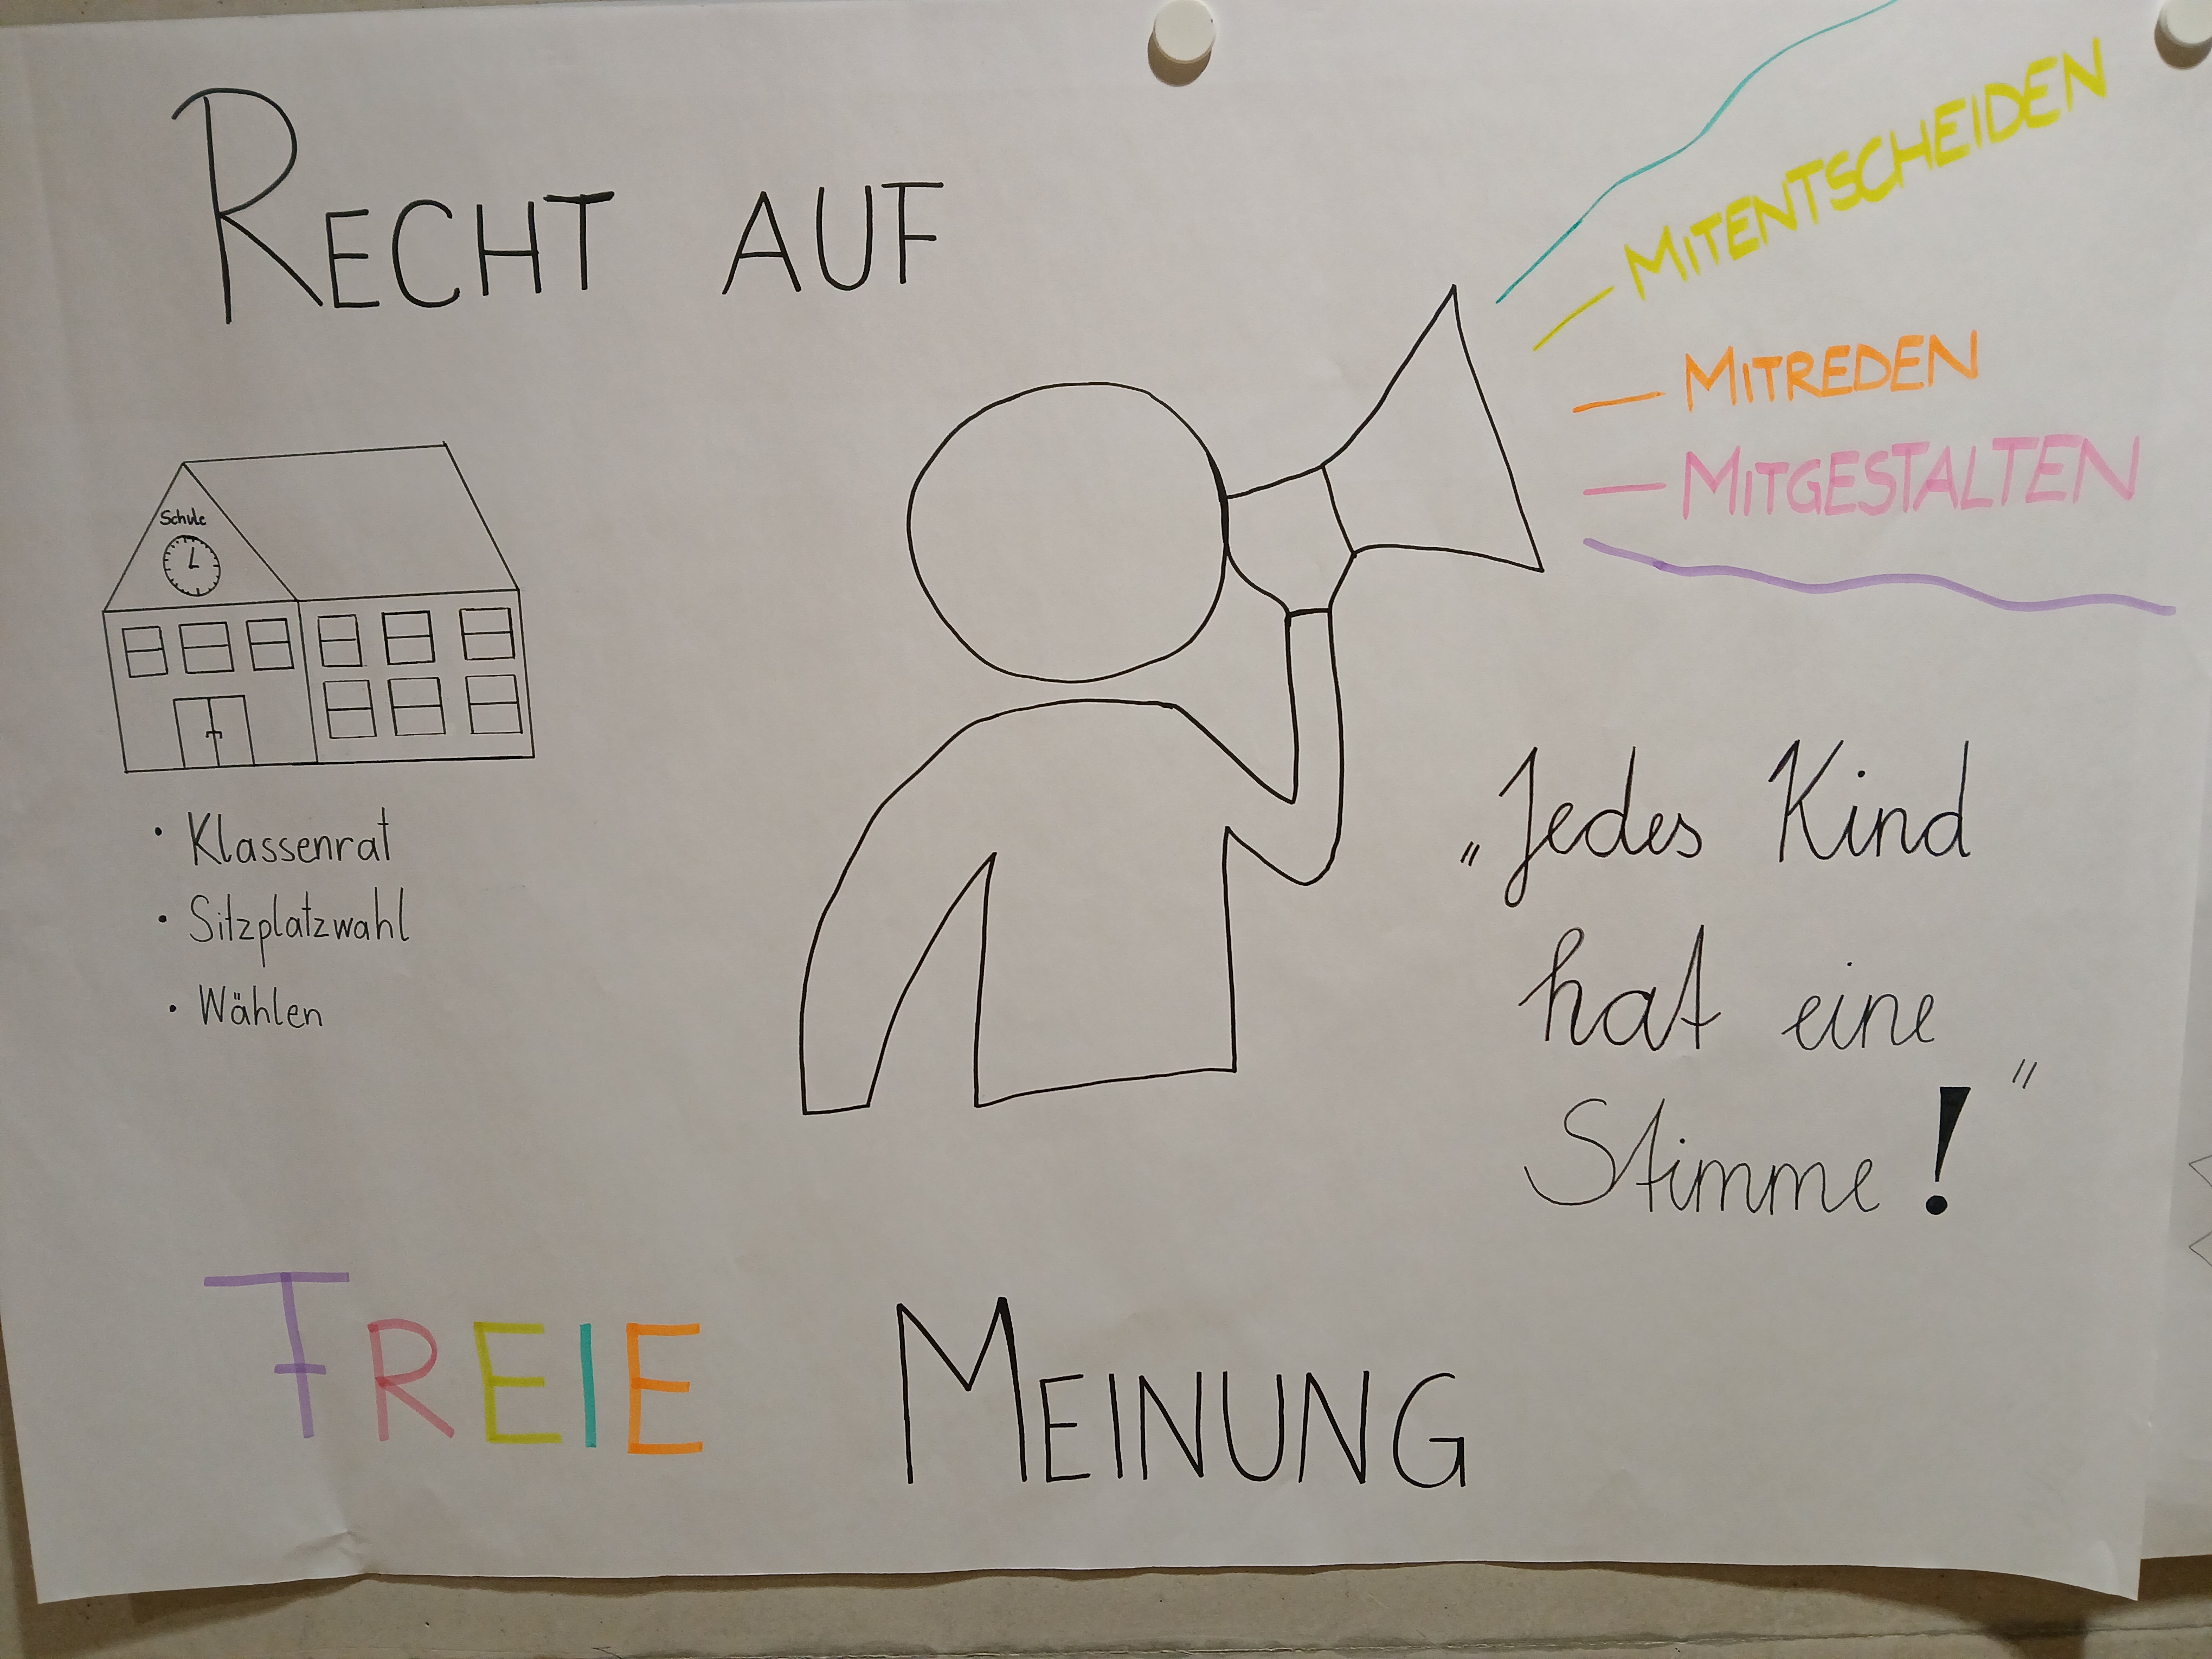 RECHT AUF
MITENTSCHEIDEN
MITREDEN
MITGESTALTEN
Schule
• Klassenrat
• Sitzplatzwahl
• Wählen
„Jedes Kind
hat eine
Stimme!"
FREIE MEINUNG